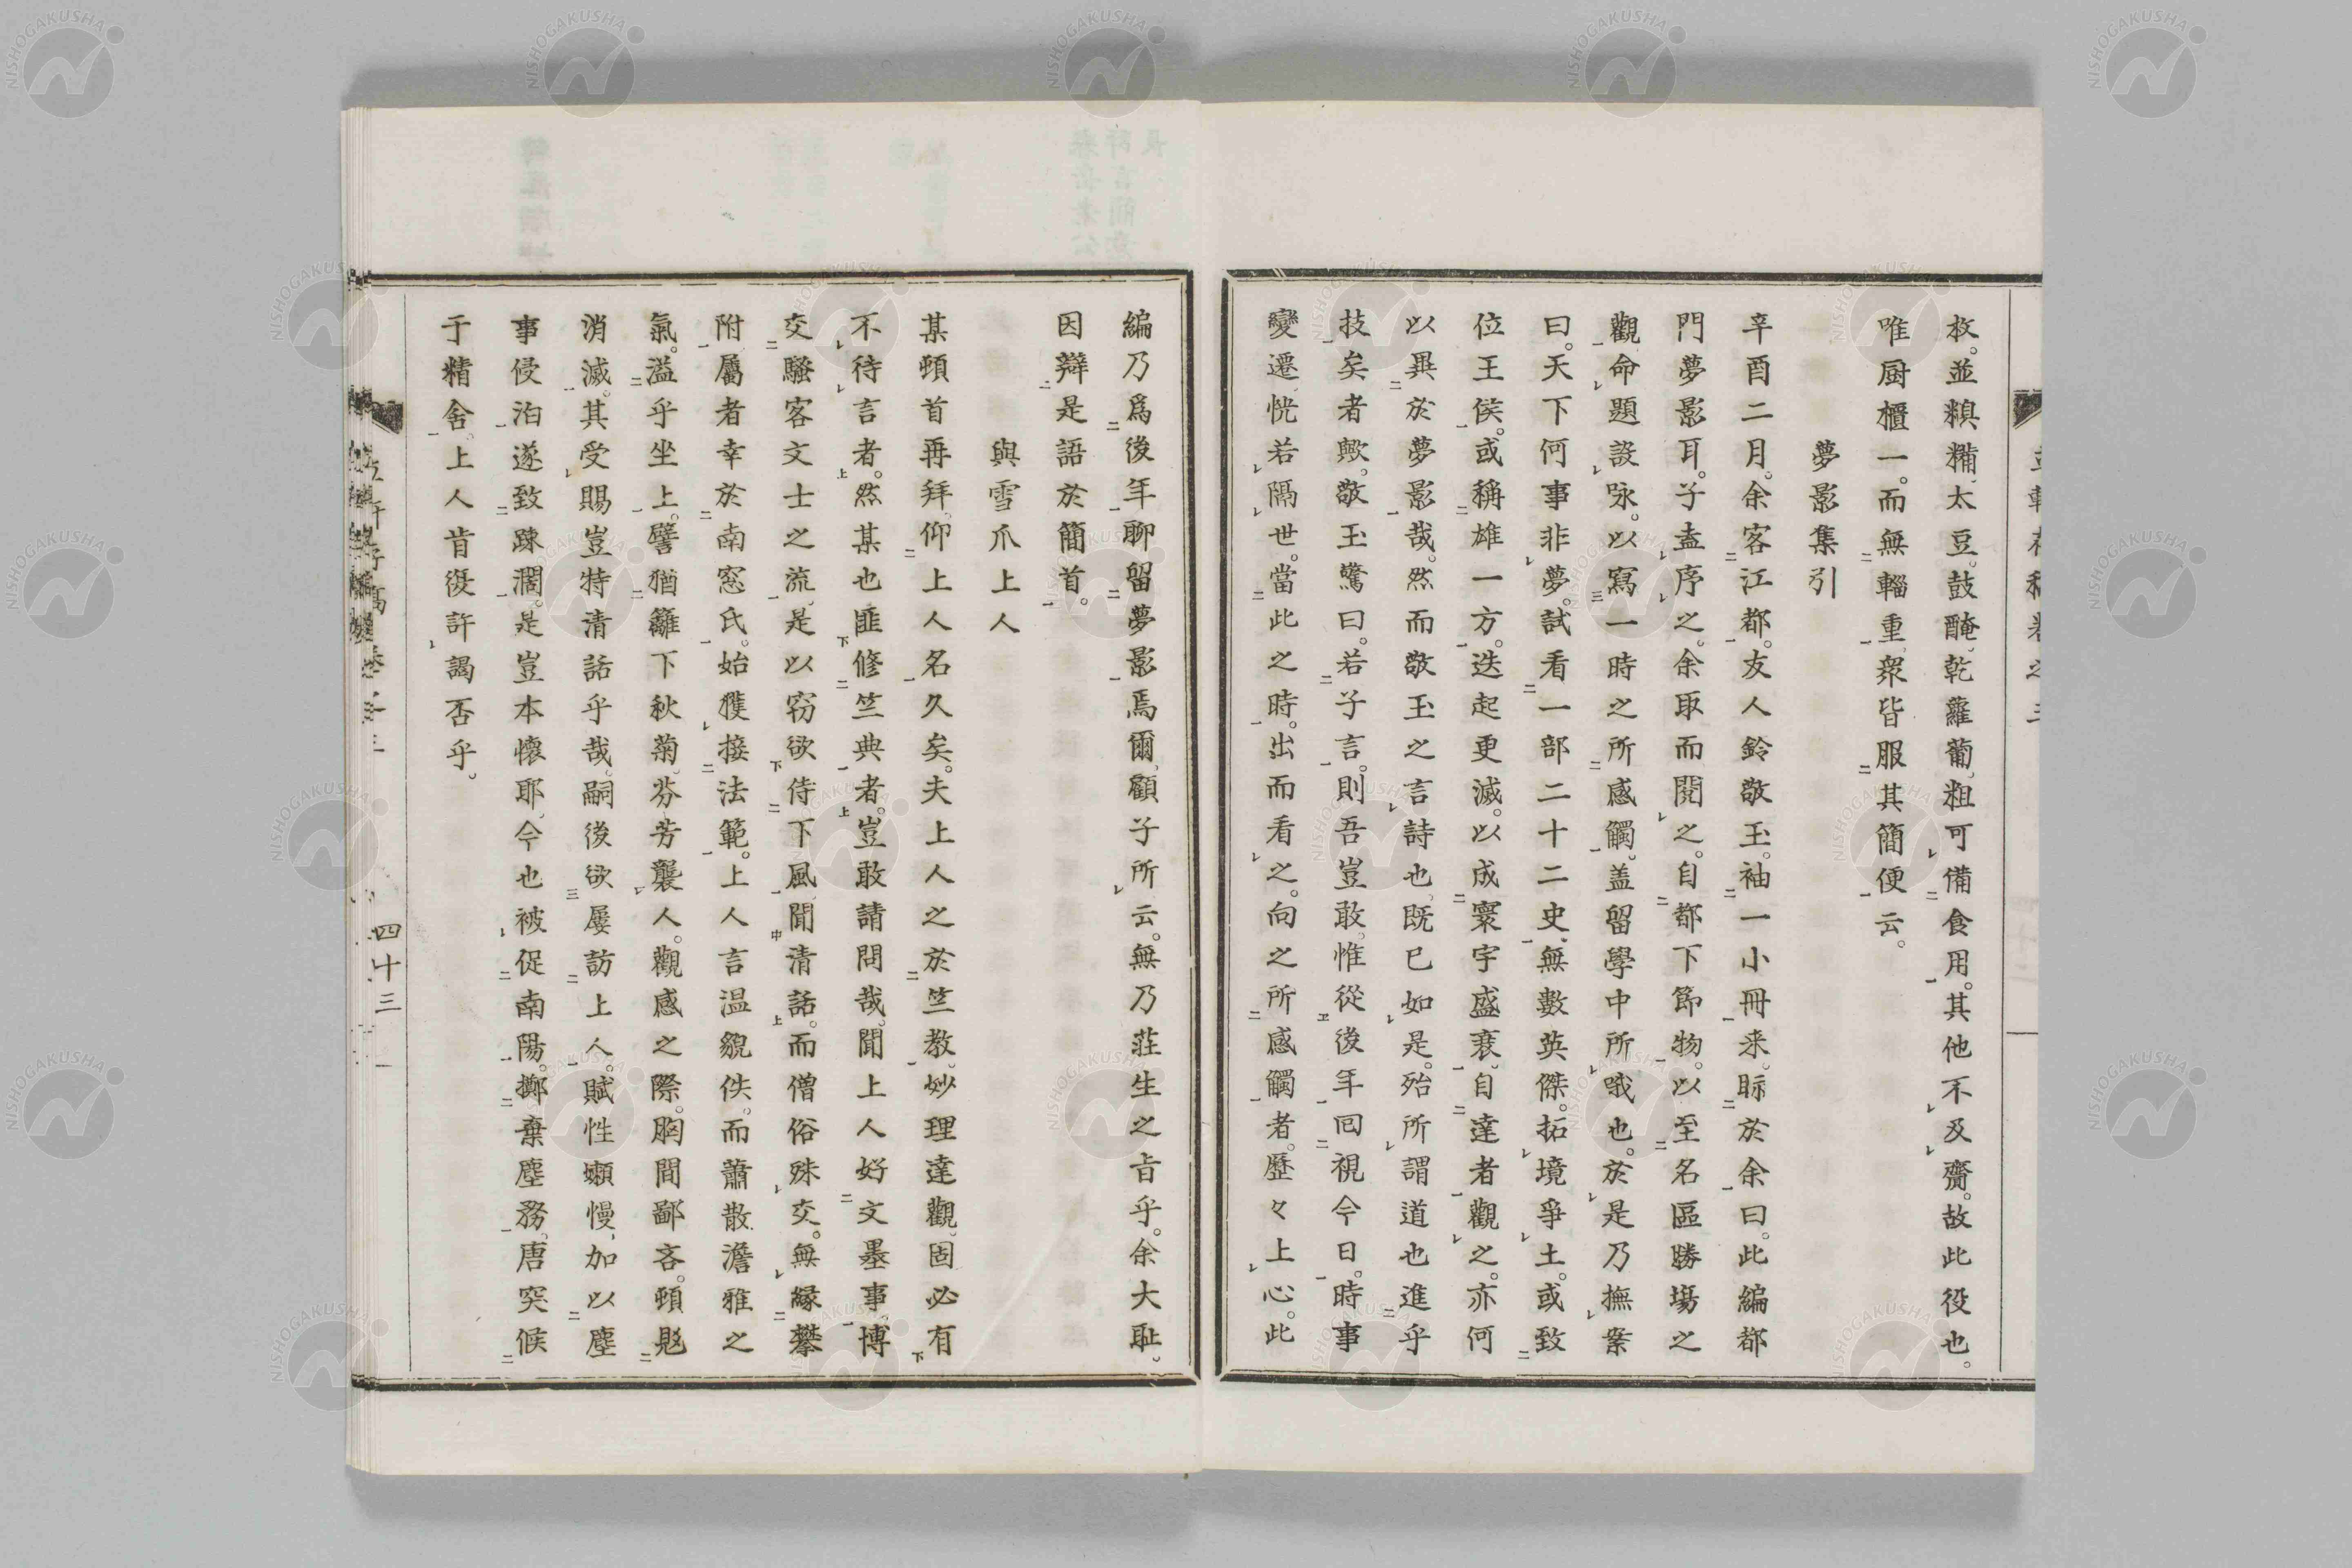 枚。並糗糒、太豆。鼓醃、乾蘿蔔、粗可備食用。其他不及齎。故此役也。
唯厨櫃一。而無輜重、衆皆服其簡便云。
夢影集引
辛酉二月。余客江都。友人鈴敬玉。袖一小冊来。眎於余曰。此編都
門夢影耳。子盍序之。余取而閱之。自都下節物。以至名區勝場之
觀命題設咏。以寫一時之所感觸。盖留學中所哦也。於是乃撫案
曰。天下何事非夢。試看一部二十二史。無數英傑。拓境爭土。或致
位王侯。或稱雄一方。迭起更滅。以成寰宇盛衰。自達者觀之。亦何
以異於夢影哉。然而敬玉之言詩也、既已如是。殆所謂道也進乎
技矣者歟。敬玉驚曰。若子言。則吾豈敢、惟從後年回視今日。時事
變遷、恍若隔世。當此之時。出而看之。向之所感觸者。歷々上心。此
編乃爲後年聊留夢影焉爾、顧子所云。無乃莊生之旨乎。余大耻。
因辯是語於簡首。
與雪爪上人
某頓首再拜。仰上人名久矣。夫上人之於竺教。妙理達觀。固必有
不待言者。然某也匪修竺典者。豈敢請問哉。聞上人好文墨事、博
交騷客文士之流、是以窃欲侍下風、聞清話。而僧俗殊交。無縁攀
附、屬者幸於南窓氏。始獲接法範。上人言温貌佚。而蕭散澹雅之
氣。溢乎坐上。譬猶籬下秋菊。芬芳襲人。觀感之際。胸間鄙吝。頓覐
消滅。其受賜豈特清話乎哉。嗣後欲屢訪上人。賦性嬾慢、加以塵
事侵泊遂致踈濶。是豈本懷耶、今也被促南陽。擲棄塵務、唐突候
于精舍。上人肯復許謁否乎。
四十三